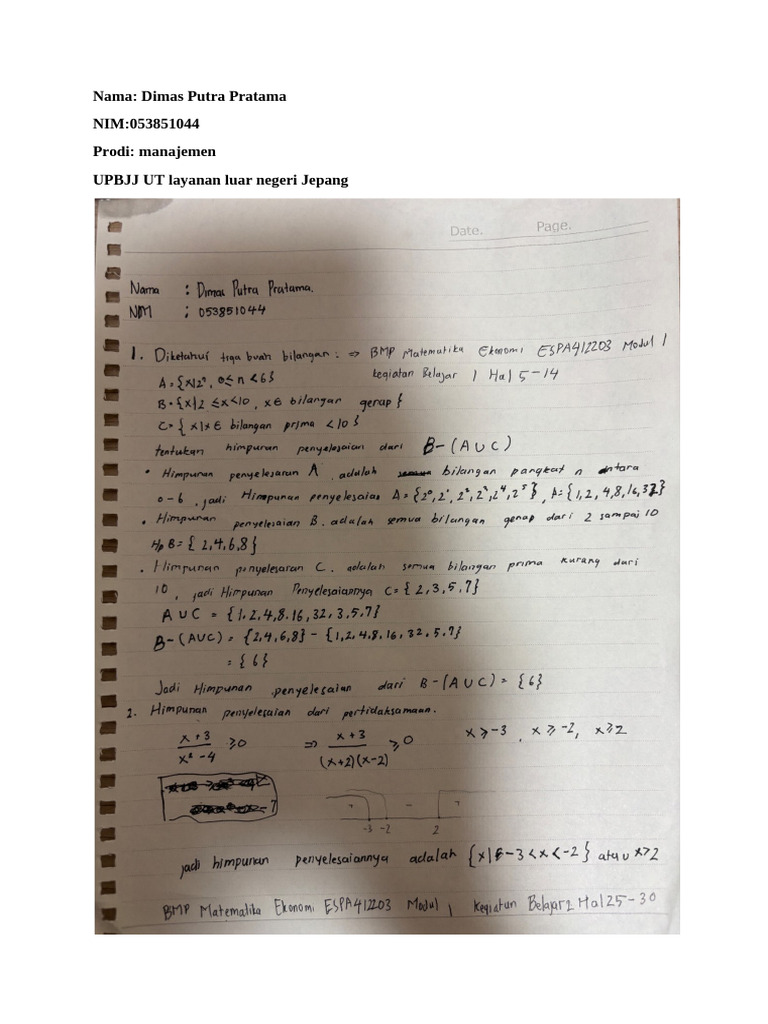 Nama: Dimas Putra Pratama
NIM:053851044
Prodi: manajemen
UPBJJ UT layanan luar negeri Jepang
Date. Page.
Nama : Dimas Putra Pratama.
NIM : 053851044
1. Diketahui tiga buah bilangan : => BMP Matematika Ekonomi ESPA412203 Modul 1
A = {x|2ⁿ, 0 ≤ n < 6} kegiatan Belajar 1 Hal 5-14
B = {x|2 ≤ x < 10, x ∈ bilangan genap}
C = {x|x ∈ bilangan prima < 10}
tentukan himpunan penyelesaian dari B - (A ∪ C)
• Himpunan penyelesaian A, adalah bilangan pangkat n antara
0-6, jadi Himpunan penyelesaian A = {2⁰, 2¹, 2², 2³, 2⁴, 2⁵}, A = {1, 2, 4, 8, 16, 32}
• Himpunan penyelesaian B. adalah semua bilangan genap dari 2 sampai 10
Hp B = {2,4,6,8}
• Himpunan penyelesaian C. adalah semua bilangan prima kurang dari
10, jadi Himpunan Penyelesaiannya C = {2,3,5,7}
A ∪ C = {1,2,4,8,16,32,3,5,7}
B - (A ∪ C) = {2,4,6,8} - {1,2,4,8,16,32,5,7}
= {6}
Jadi Himpunan penyelesaian dari B - (A ∪ C) = {6}
2. Himpunan penyelesaian dari pertidaksamaan.
x+3 / x² - 4 ≥ 0 => x+3 / (x+2)(x-2) ≥ 0 x ≥ -3, x ≥ -2, x ≥ 2
+ - +
-3 -2 2
jadi himpunan penyelesaiannya adalah {x| -3 < x < -2} atau x > 2
BMP Matematika Ekonomi ESPA412203 Modul 1 kegiatan Belajar 2 Hal 25-30